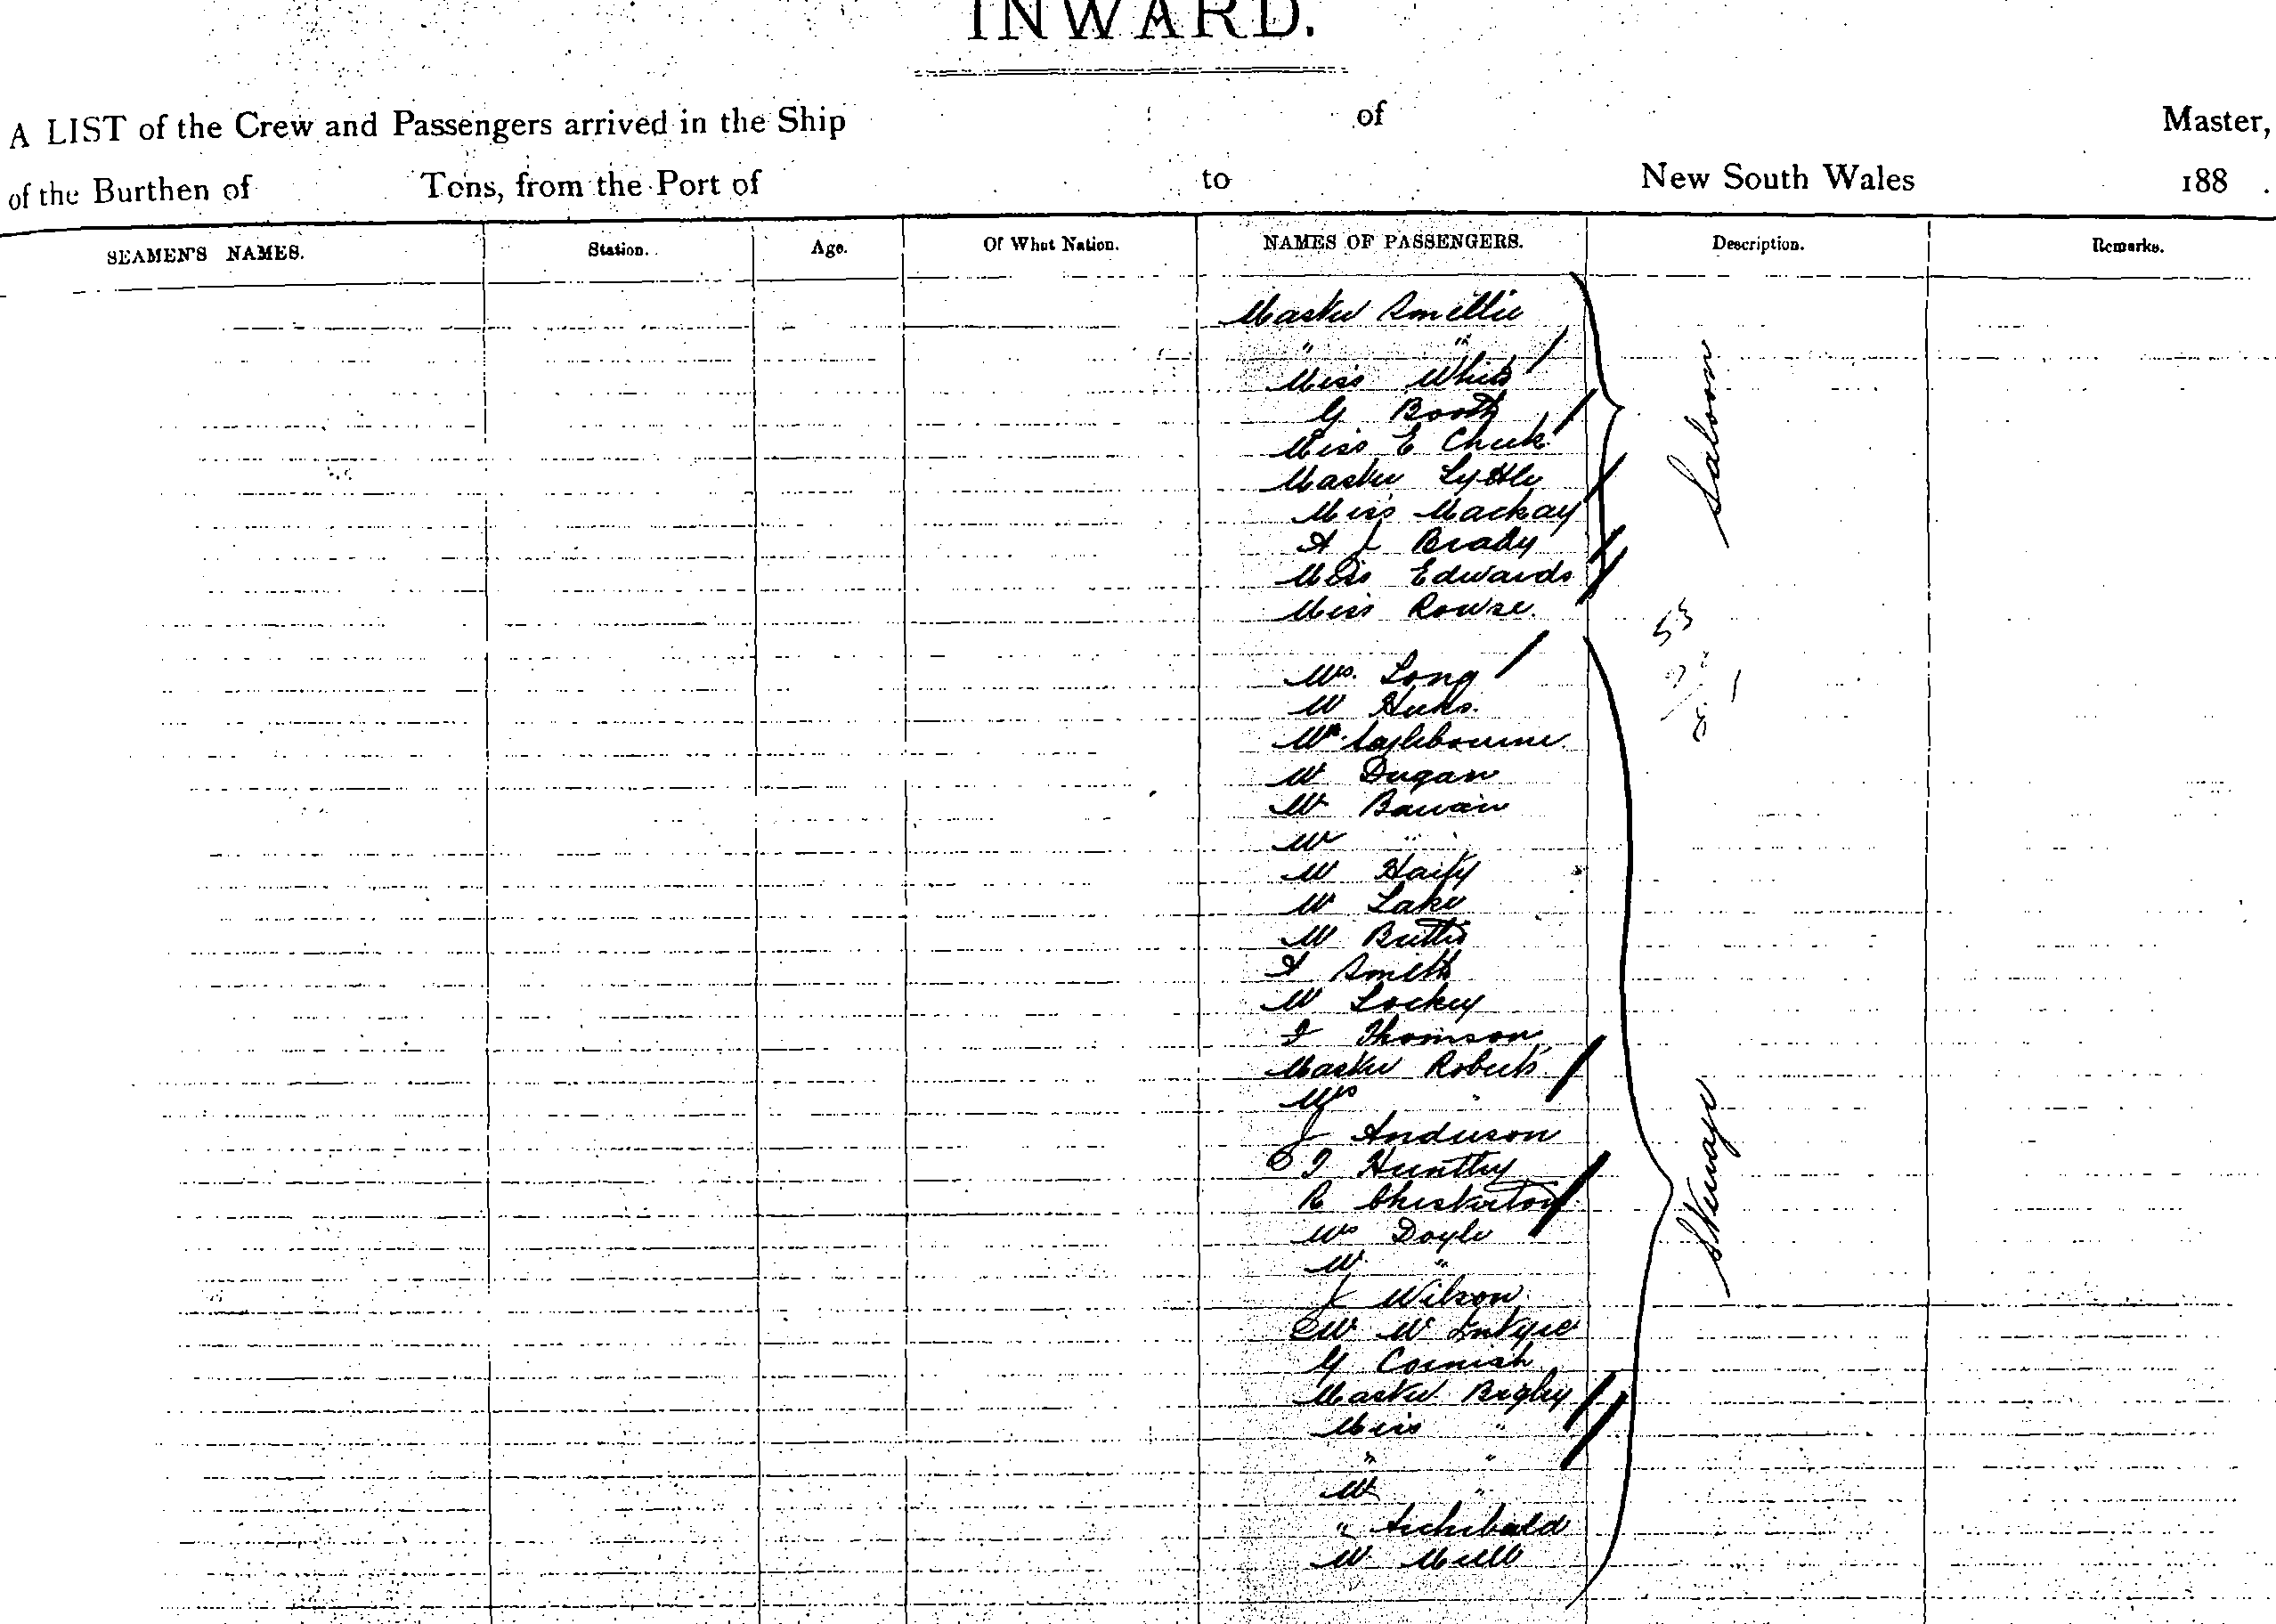 INWARD.
A LIST of the Crew and Passengers arrived in the Ship of Master,
of the Burthen of Tons, from the Port of to New South Wales 188 .
SEAMEN'S NAMES. Station. Age. Of What Nation. NAMES OF PASSENGERS. Description. Remarks.
Master Smellie
" "
Miss White
G Booth
Miss E Cheek
Master Lyttle
Miss Mackay
A J Brady
Miss Edwards
Miss Rowse.
Saloon
Mrs. Long
Mr Hicks.
Mr
Mr Dugan
Mr
Mr "
Mr
Mr Lake
Mr
Smith
Mr Lockey
Thomson
Master Roberts
Mrs "
J Anderson
Huntley
R Chesterton
Mrs Doyle
Mr "
J Wilson
Mr McIntyre
G Cornish
Master Begley
Miss "
" "
Mr "
" Archibald
Mr
Steerage